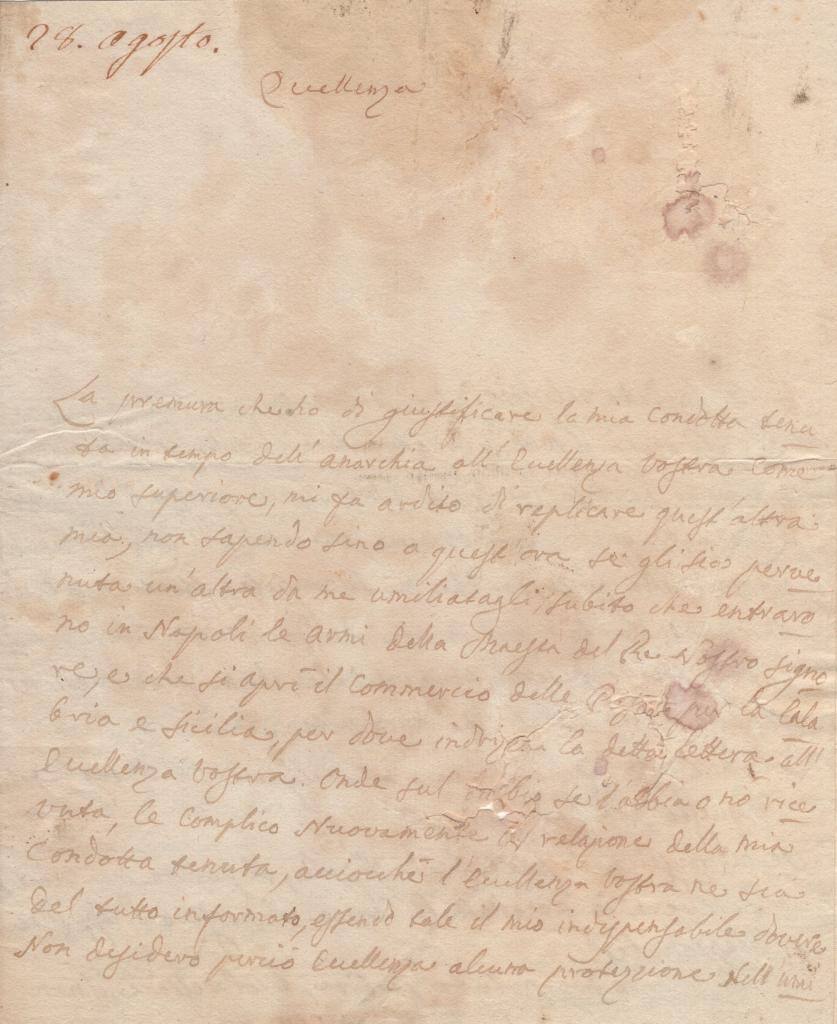 28. agosto.
Eccellenza
La premura che ho di giustificare la mia condotta tenu
ta in tempo dell'anarchia all'Eccellenza Vostra come
mio superiore, mi fa ardito di replicare quest'altra
mia, non sapendo sino a quest'ora se gli sia perve
nuta un'altra da me umiliatagli, subito che entraro
no in Napoli le armi della Maestà del Re Nostro Signo
re, e che si aprì il commercio delle Poste per la Cala
bria e Sicilia, per dove indrizzai la detta lettera all'
Eccellenza Vostra. Onde sul dubbio se l'abbia o nò rice
vuta, le complico nuovamente la relazione della mia
condotta tenuta, acciocchè l'Eccellenza Vostra ne sia
del tutto informato, essendo tale il mio indispensabile dovere
Non desidero perciò Eccellenza alcuna protezzione nell'umi